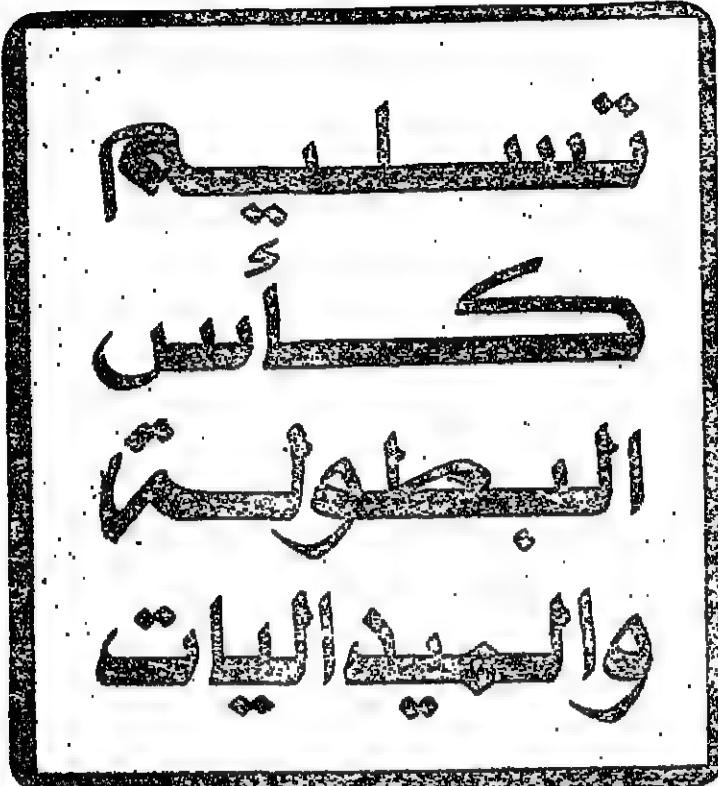 تسليم
كأس
البطولة
والميداليات